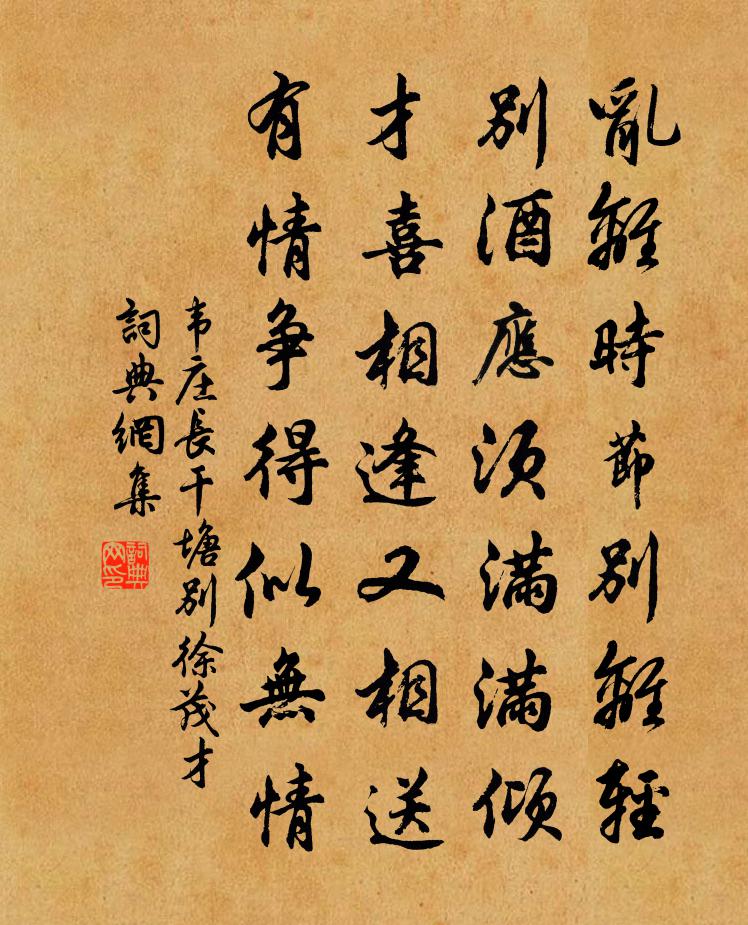 亂離時節別離輕
別酒應須滿滿傾
才喜相逢又相送
有情爭得似無情
韦庄長干塘別徐茂才
詞典網集
詞典网印